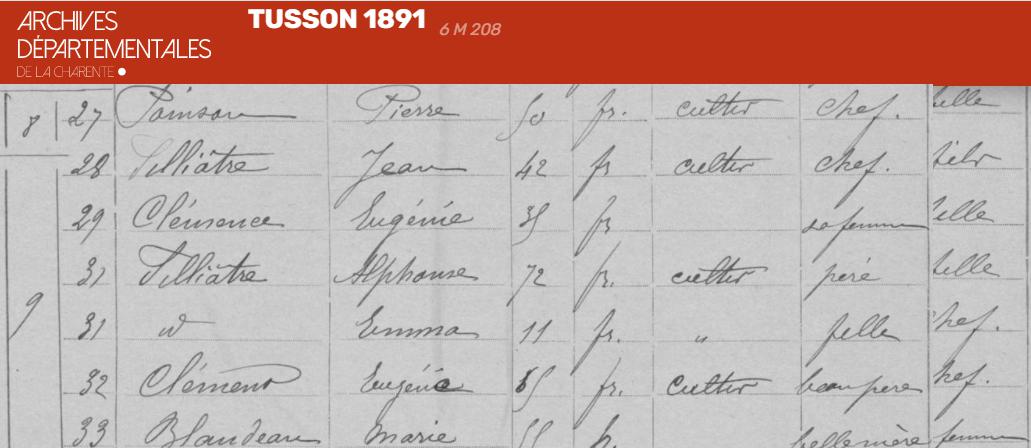 ARCHIVES
DÉPARTEMENTALES
DE LA CHARENTE
TUSSON 1891 6 M 208
8 27 Poinson Pierre 50 fr. cultir chef. fille
28 Filliâtre Jean 42 fr cultir chef.
29 Clémence Eugénie 35 fr sa femme fille
31 Filliâtre Alphonse 72 fr. cultir père fille
9 31 id Emma 11 fr. " fille chef.
32 Clément Eugénie 65 fr. cultir beau pere chef.
33 Blandeau Marie 55 fr. belle mère femme